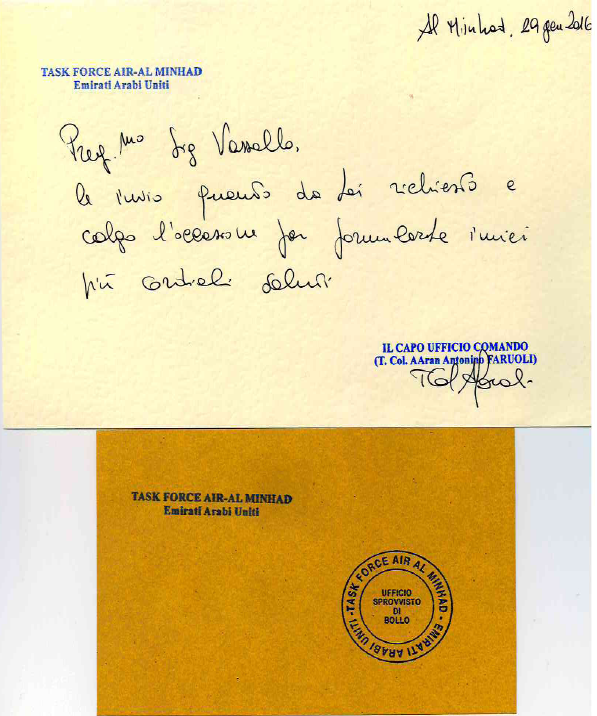 Al Minhad, 29 gen 2016
TASK FORCE AIR-AL MINHAD
Emirati Arabi Uniti
Preg.mo Sig Vassallo,
le invio quanto da Lei richiesto e
colgo l'occasione per formularle i miei
più cordiali saluti
IL CAPO UFFICIO COMANDO
(T. Col. AAran Antonino FARUOLI)
TASK FORCE AIR-AL MINHAD
Emirati Arabi Uniti
TASK FORCE AIR AL MINHAD - EMIRATI ARABI UNITI -
UFFICIO
SPROVVISTO
DI
BOLLO